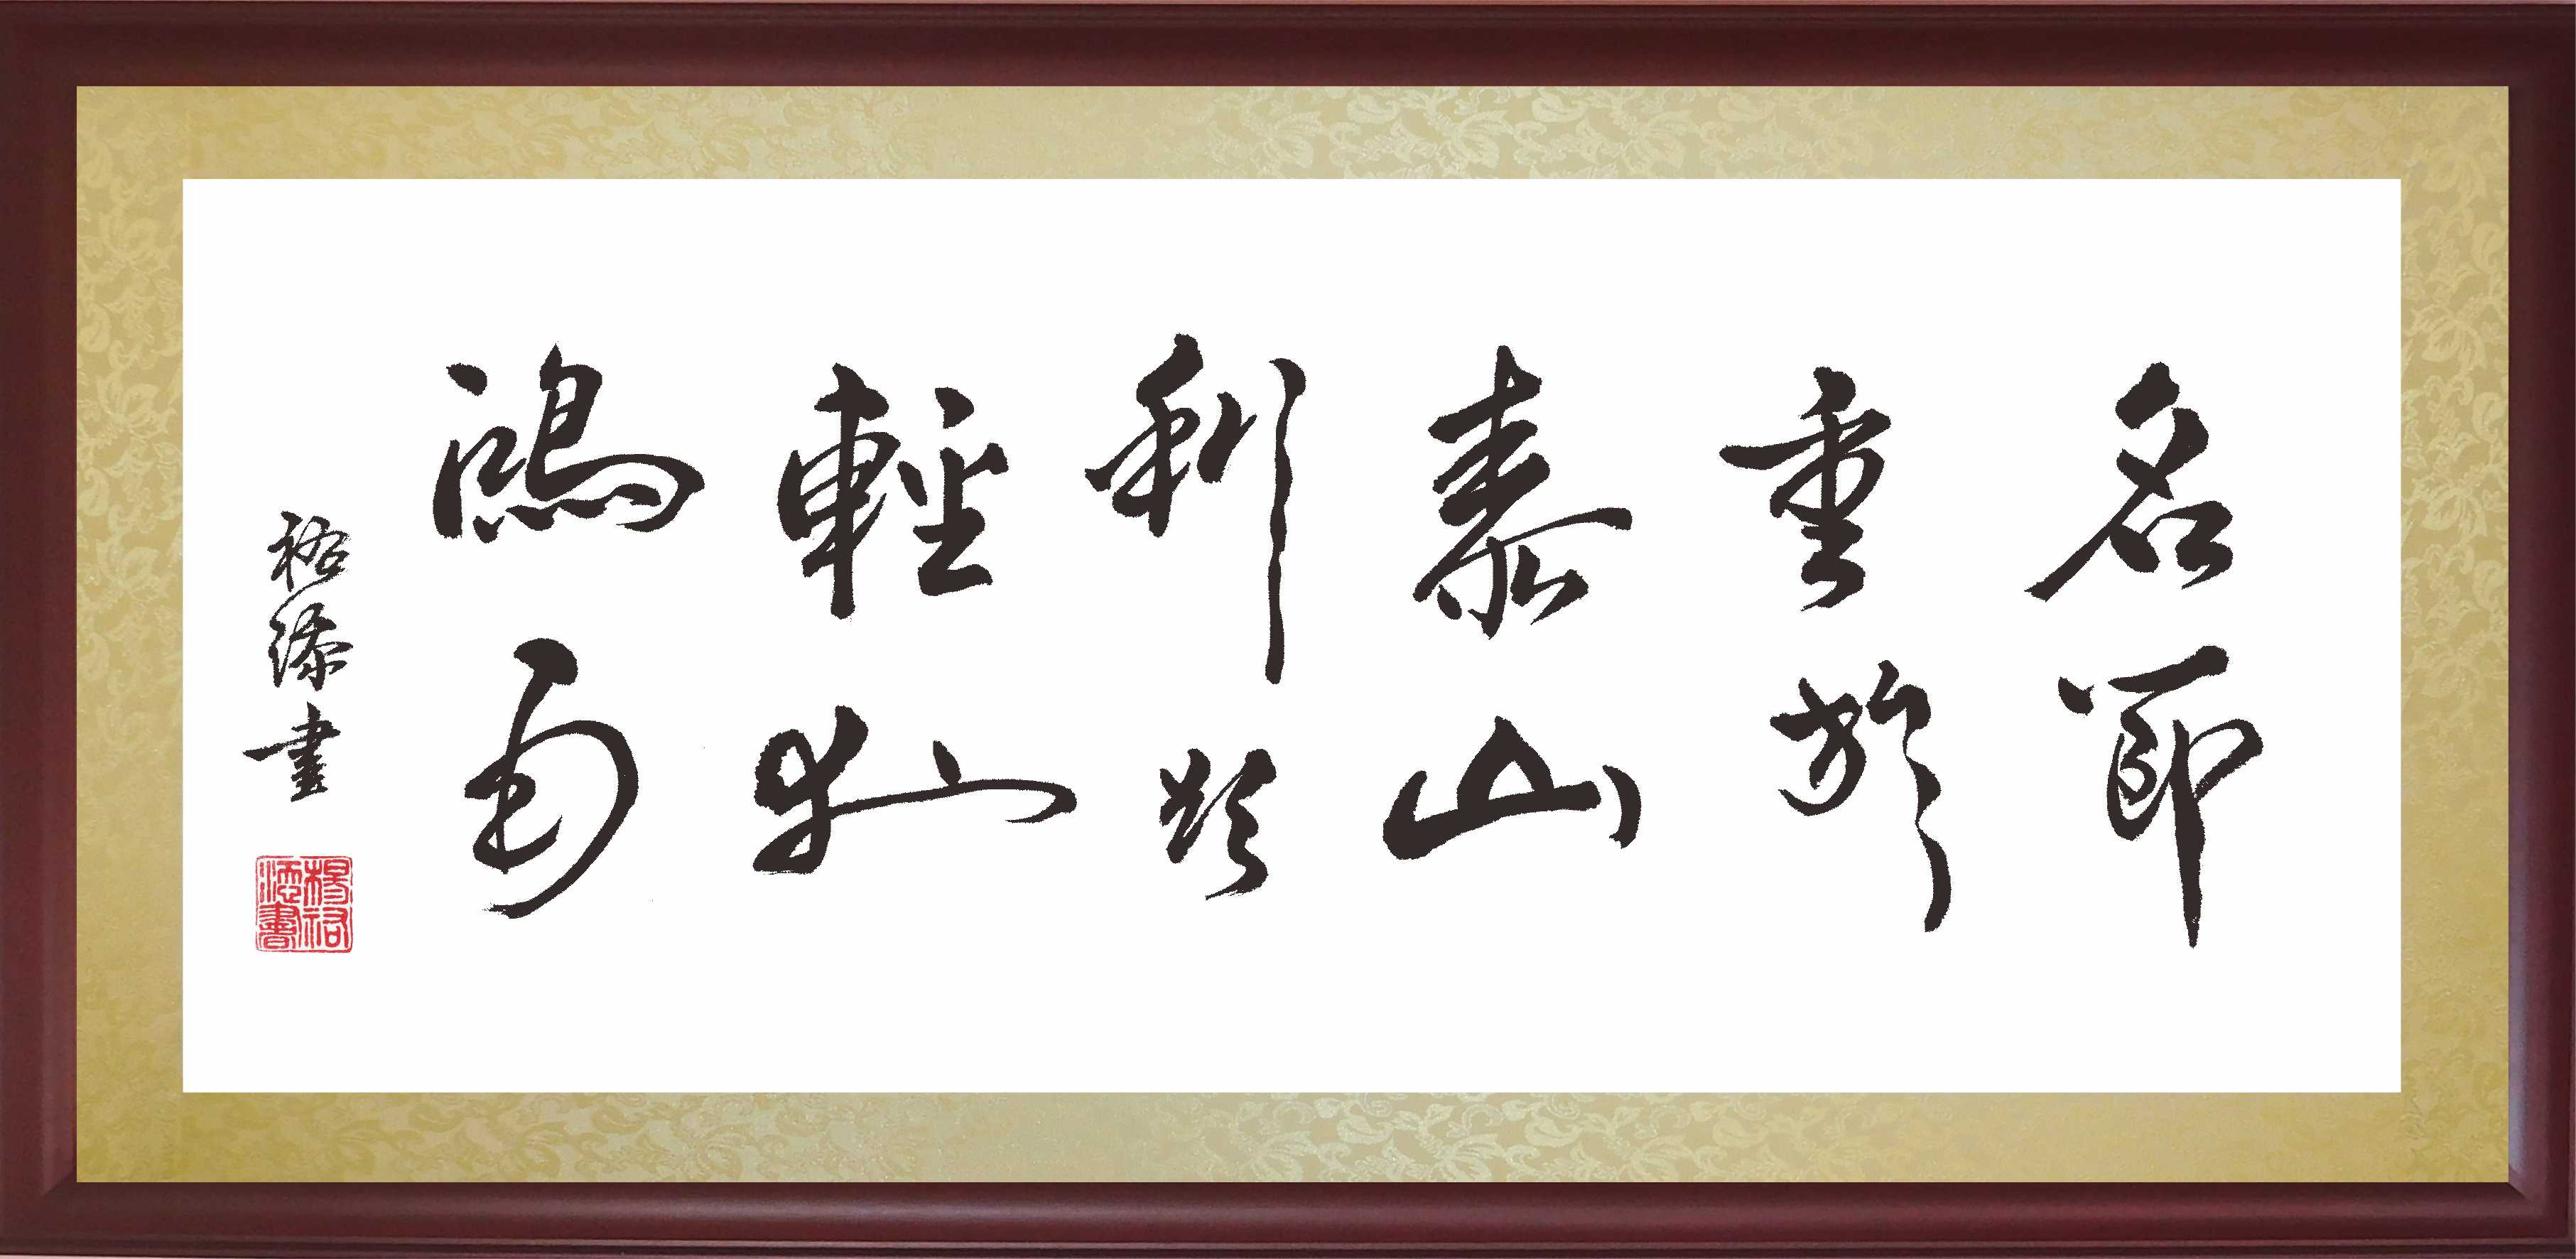 名節
重於
泰山
利欲
輕於
鴻毛
裕添書
楊裕
添書